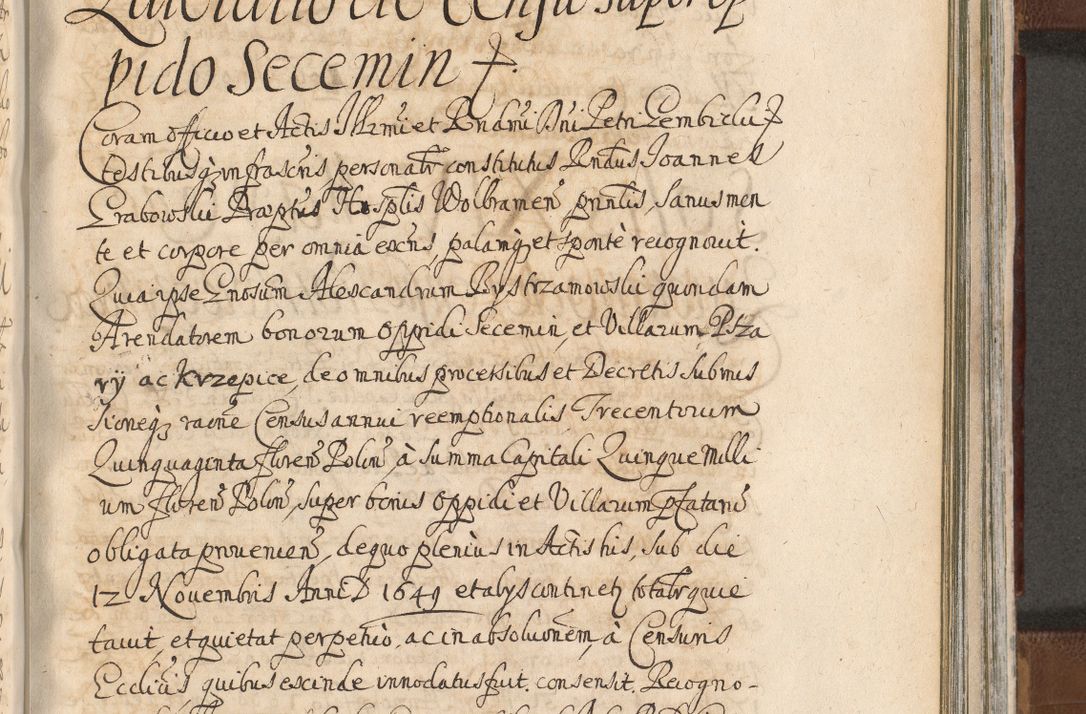 Quietatio de Censu super op
pido Secemin
Coram officio et Actis Illrmi et Rndmi Dni Petri Gembicki
testibusq infrascris personalr constitutus Rndus Joannes
Grabowski Præptus Hosplis Wolbramen prinlis, Sanus men
te et corpore per omnia exens, palamq et sponte recognovit.
Quia ipse Gnosum Alexandrum Bystrzamowski quondam
Arendatorem bonorum oppidi Secemin, et Villarum Psza
ryj ac Krzepice, de omnibus processibus et Decretis submis
sioneq raone Census annui reemptionalis Trecentorum
Quinquaginta floren Polon à Summa Capitali Quinque Milli
um floren Polon, super bonis oppidi et Villarum pfatarum
obligata provenien, de quo plenius in Actis his, sub die
12 Novembris Anni D 1649 et alys continetz totalr quie
tavit, et quietat perpetuo, ac in absoluonem, à Censuris
Ecclicis quibus exinde innodatus fuit. consensit. Recogno-